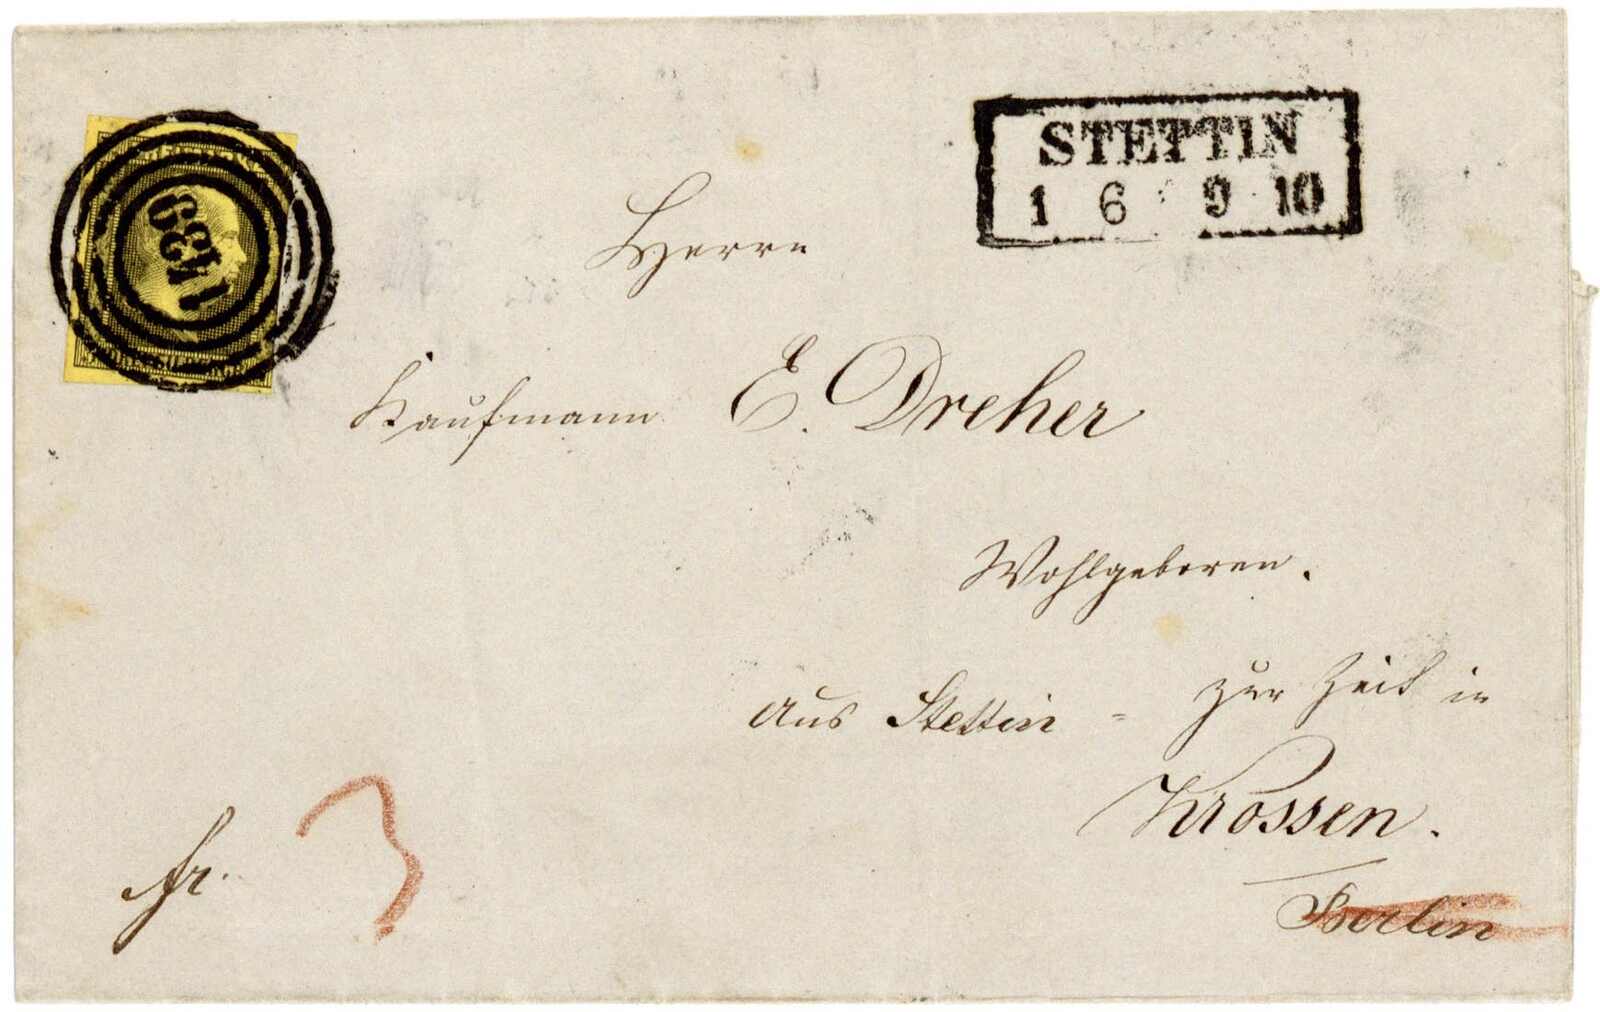 STETTIN
1 6 9 10
1439
Herrn
Kaufmann E. Dreher
Wohlgeboren.
Aus Stettin = zur Zeit in
Krossen.
Berlin
fr. 3